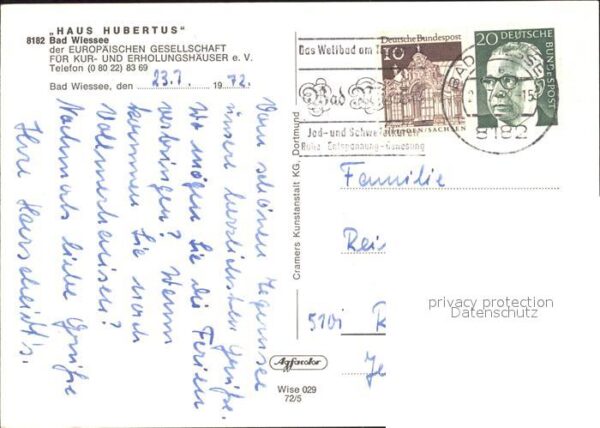 „HAUS HUBERTUS"
8182 Bad Wiessee
der EUROPÄISCHEN GESELLSCHAFT
FÜR KUR- UND ERHOLUNGSHÄUSER e. V.
Telefon (0 80 22) 83 69
Bad Wiessee, den 23.7. 1972.
Vom schönen Tegernsee
unsere herzlichsten Grüße.
Wo mögen Sie die Ferien
verbringen? Wann
kommen Sie nach
Vollmerhausen?
Nochmals liebe Grüße
Ihre
Cramers Kunstanstalt KG, Dortmund
Agfacolor
Wise 029
72/5
Das Weltbad am
Bad
Jod- und Schwefelkuren
Ruhe Entspannung Genesung
Deutsche Bundespost
10
SACHSEN
20
DEUTSCHE BUNDESPOST
BAD
8182
Familie
Rei
privacy protection
Datenschutz